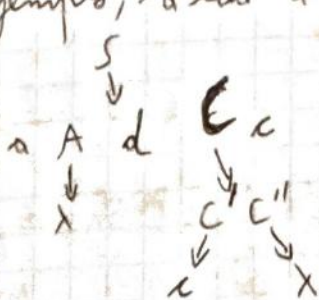 S
a A d C c
λ C' C"
c λ